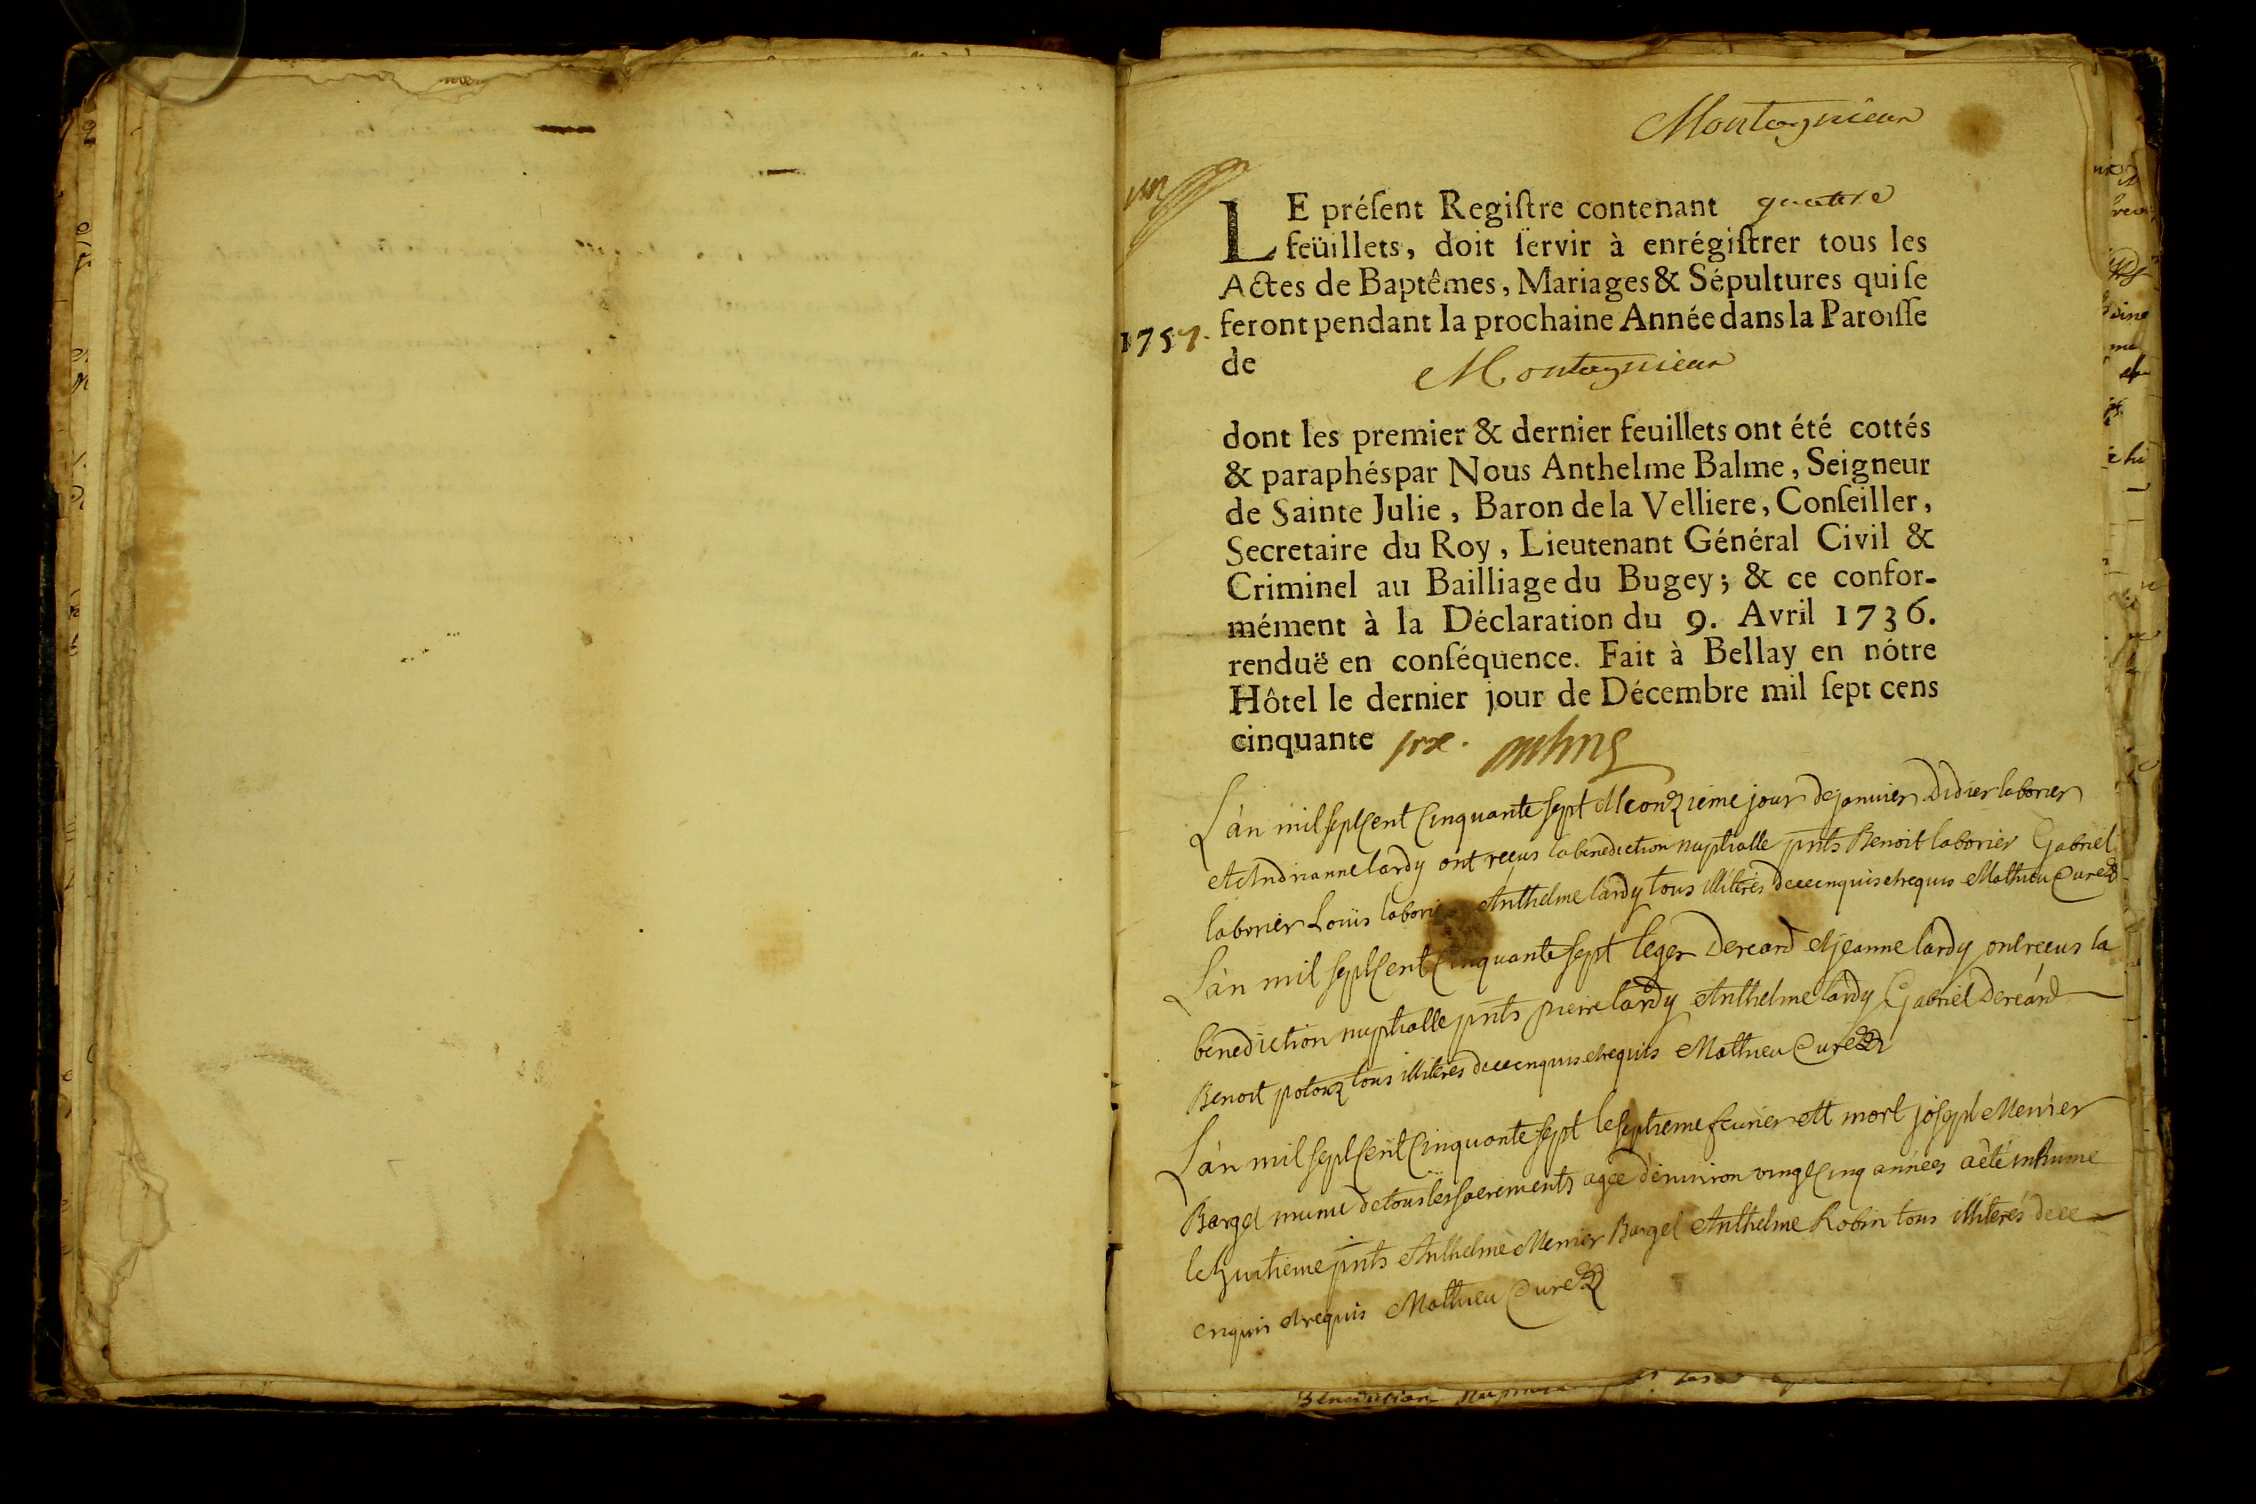 Montagnieu
un
LE préſent Regiſtre contenant quatre
feüillets, doit ſervir à enrégiſtrer tous les
Actes de Baptêmes, Mariages & Sépultures qui ſe
1757. feront pendant la prochaine Année dans la Paroiſſe
de Montagnieu
dont les premier & dernier feuillets ont été cottés
& paraphés par Nous Anthelme Balme, Seigneur
de Sainte Julie, Baron de la Velliere, Conſeiller,
Secretaire du Roy, Lieutenant Général Civil &
Criminel au Bailliage du Bugey; & ce confor-
mément à la Déclaration du 9. Avril 1736.
renduë en conſéquence. Fait à Bellay en nôtre
Hôtel le dernier jour de Décembre mil ſept cens
cinquante six.
L'àn mil sept Cent Cinquante sept et le onzieme jour de janvier Didier laborier
et Andrianne lardy ont reçus la benediction nuptialle pnts Benoit laborier Gabriel
laborier Loüis laborier Anthelme lardy tous illiterés de ce enquis et requis Mathieu Curé
L'àn mil sept Cent Cinquante sept leger Dereard et jeanne lardy ont reçus la
bénediction nuptialle pnts pierre lardy Anthelme lardy Gabriel Dereard
Benoit potoux tous illiterés de ce enquis et requis Mathieu Curé
L'àn mil sept Cent Cinquante sept le septieme feurier est mort joseph Mernier
Barget muni de tous les sacrements agée d'enuiron vingt Cinq années a été inhumé
le huitieme pnts Anthelme Mernier Barget Anthelme Robin tous illiterés de ce
enquis et requis Mathieu Curé
Benediction